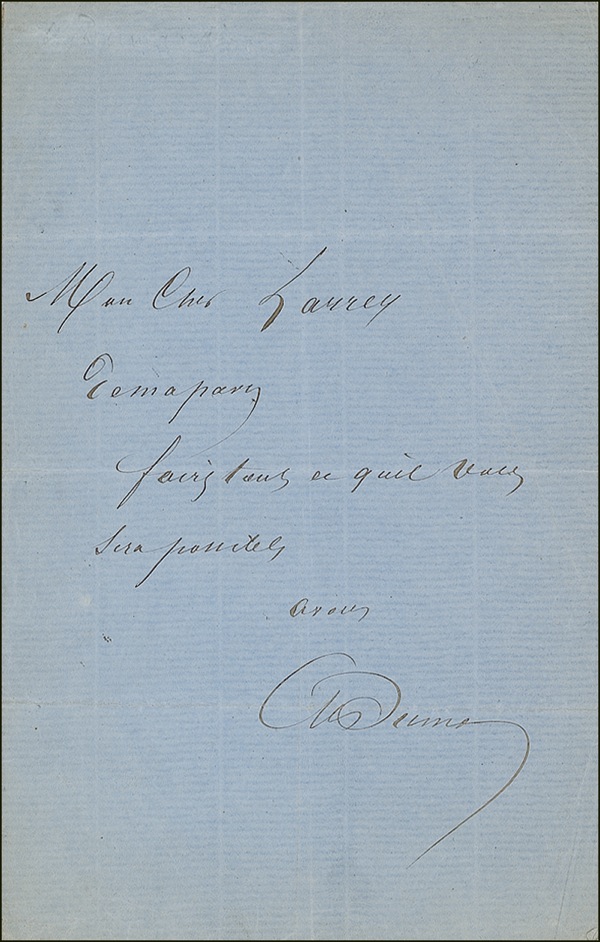 Mon Cher Larrey
De ma part
faites tout ce qu'il vous
sera possible
a vous
A Dumas